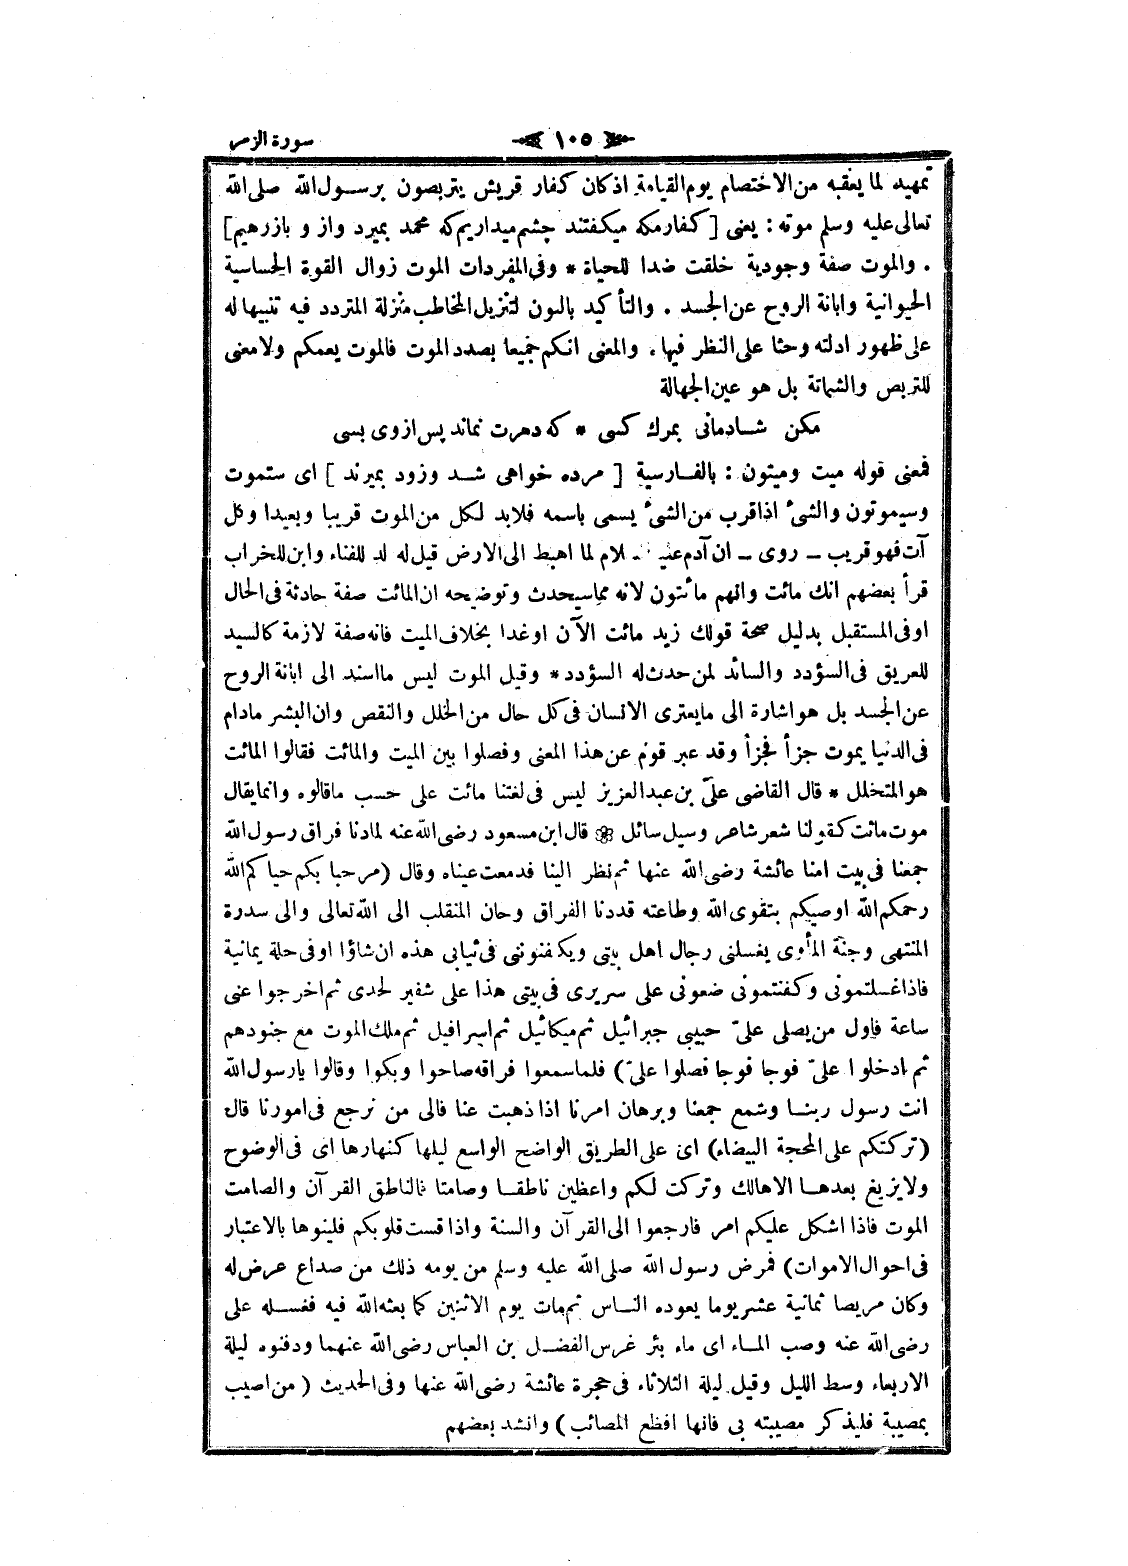 سورة الزمر ١٠٥
تمهيد لما يعقبه من الاختصام يوم القيامة اذ كان كفار قريش يتربصون برسول الله صلى الله
تعالى عليه وسلم موته : يعنى [ كفار مكه ميكفتند چشم ميداريم كه محمد بميرد واز و بازرهيم ]
. والموت صفة وجودية خلقت ضدا للحياة * وفى المفردات الموت زوال القوة الحساسية
الحيوانية وابانة الروح عن الجسد . والتأكيد بالنون لتنزيل المخاطب منزلة المتردد فيه تنبيها له
على ظهور ادلته وحثا على النظر فيها . والمعنى انكم جميعا بصدد الموت فالموت يعمكم ولا معنى
للتربص والشماتة بل هو عين الجهالة
مكن شادمانى بمرك كسى * كه دهرت نماند پس ازوى بسى
فمعنى قوله ميت وميتون : بالفارسية [ مرده خواهى شد وزود بميرند ] اى ستموت
وسيموتون والشئ اذا قرب من الشئ يسمى باسمه فلابد لكل من الموت قريبا وبعيدا وكل
آت فهو قريب ـ روى ـ ان آدم عليه لام لما اهبط الى الارض قيل له لد للفناء وابن للخراب
قرأ بعضهم انك مائت وانهم مائتون لانه مما سيحدث وتوضيحه ان المائت صفة حادثة فى الحال
اوفى المستقبل بدليل صحة قولك زيد مائت الآن اوغدا بخلاف الميت فانه صفة لازمة كالسيد
للعريق فى السؤدد والسائد لمن حدث له السؤدد * وقيل الموت ليس ما اسند الى ابانة الروح
عن الجسد بل هو اشارة الى ما يعترى الانسان فى كل حال من الخلل والنقص وان البشر مادام
فى الدنيا يموت جزأ فجزأ وقد عبر قوم عن هذا المعنى وفصلوا بين الميت والمائت فقالوا المائت
هو المتخلل * قال القاضى علىّ بن عبد العزيز ليس فى لغتنا مائت على حسب ما قالوه وانما يقال
موت مائت كقولنا شعر شاعر وسيل سائل ❁ قال ابن مسعود رضى الله عنه لما دنا فراق رسول الله
جمعنا فى بيت امنا عائشة رضى الله عنها ثم نظر الينا فدمعت عيناه وقال ( مرحبا بكم حياكم الله
رحمكم الله اوصيكم بتقوى الله وطاعته قد دنا الفراق وحان المنقلب الى الله تعالى والى سدرة
المنتهى وجنة المأوى يغسلنى رجال اهل بيتى ويكفنوننى فى ثيابى هذه ان شاؤا اوفى حلة يمانية
فاذا غسلتمونى وكفنتمونى ضعونى على سريرى فى بيتى هذا على شفير لحدى ثم اخرجوا عنى
ساعة فاول من يصلى علىّ حبيبى جبرائيل ثم ميكائيل ثم اسرافيل ثم ملك الموت مع جنودهم
ثم ادخلوا علىّ فوجا فوجا فصلوا علىّ ) فلما سمعوا فراقه صاحوا وبكوا وقالوا يارسول الله
انت رسول ربنا وشمع جمعنا وبرهان امرنا اذا ذهبت عنا فالى من نرجع فى امورنا قال
( تركتكم على المحجة البيضاء ) اى على الطريق الواضح الواسع ليلها كنهارها اى فى الوضوح
ولا يزيغ بعدها الا هالك وتركت لكم واعظين ناطقا وصامتا فالناطق القرآن والصامت
الموت فاذا اشكل عليكم امر فارجعوا الى القرآن والسنة واذا قست قلوبكم فلينوها بالاعتبار
فى احوال الاموات ) فمرض رسول الله صلى الله عليه وسلم من يومه ذلك من صداع عرض له
وكان مريضا ثمانية عشر يوما يعوده الناس ثم مات يوم الاثنين كما بعثه الله فيه فغسله على
رضى الله عنه وصب الماء اى ماء بئر غرس الفضل بن العباس رضى الله عنهما ودفنوه ليلة
الاربعاء وسط الليل وقيل ليلة الثلاثاء فى حجرة عائشة رضى الله عنها وفى الحديث ( من اصيب
بمصيبة فليذكر مصيبته بى فانها افظع المصائب ) وانشد بعضهم